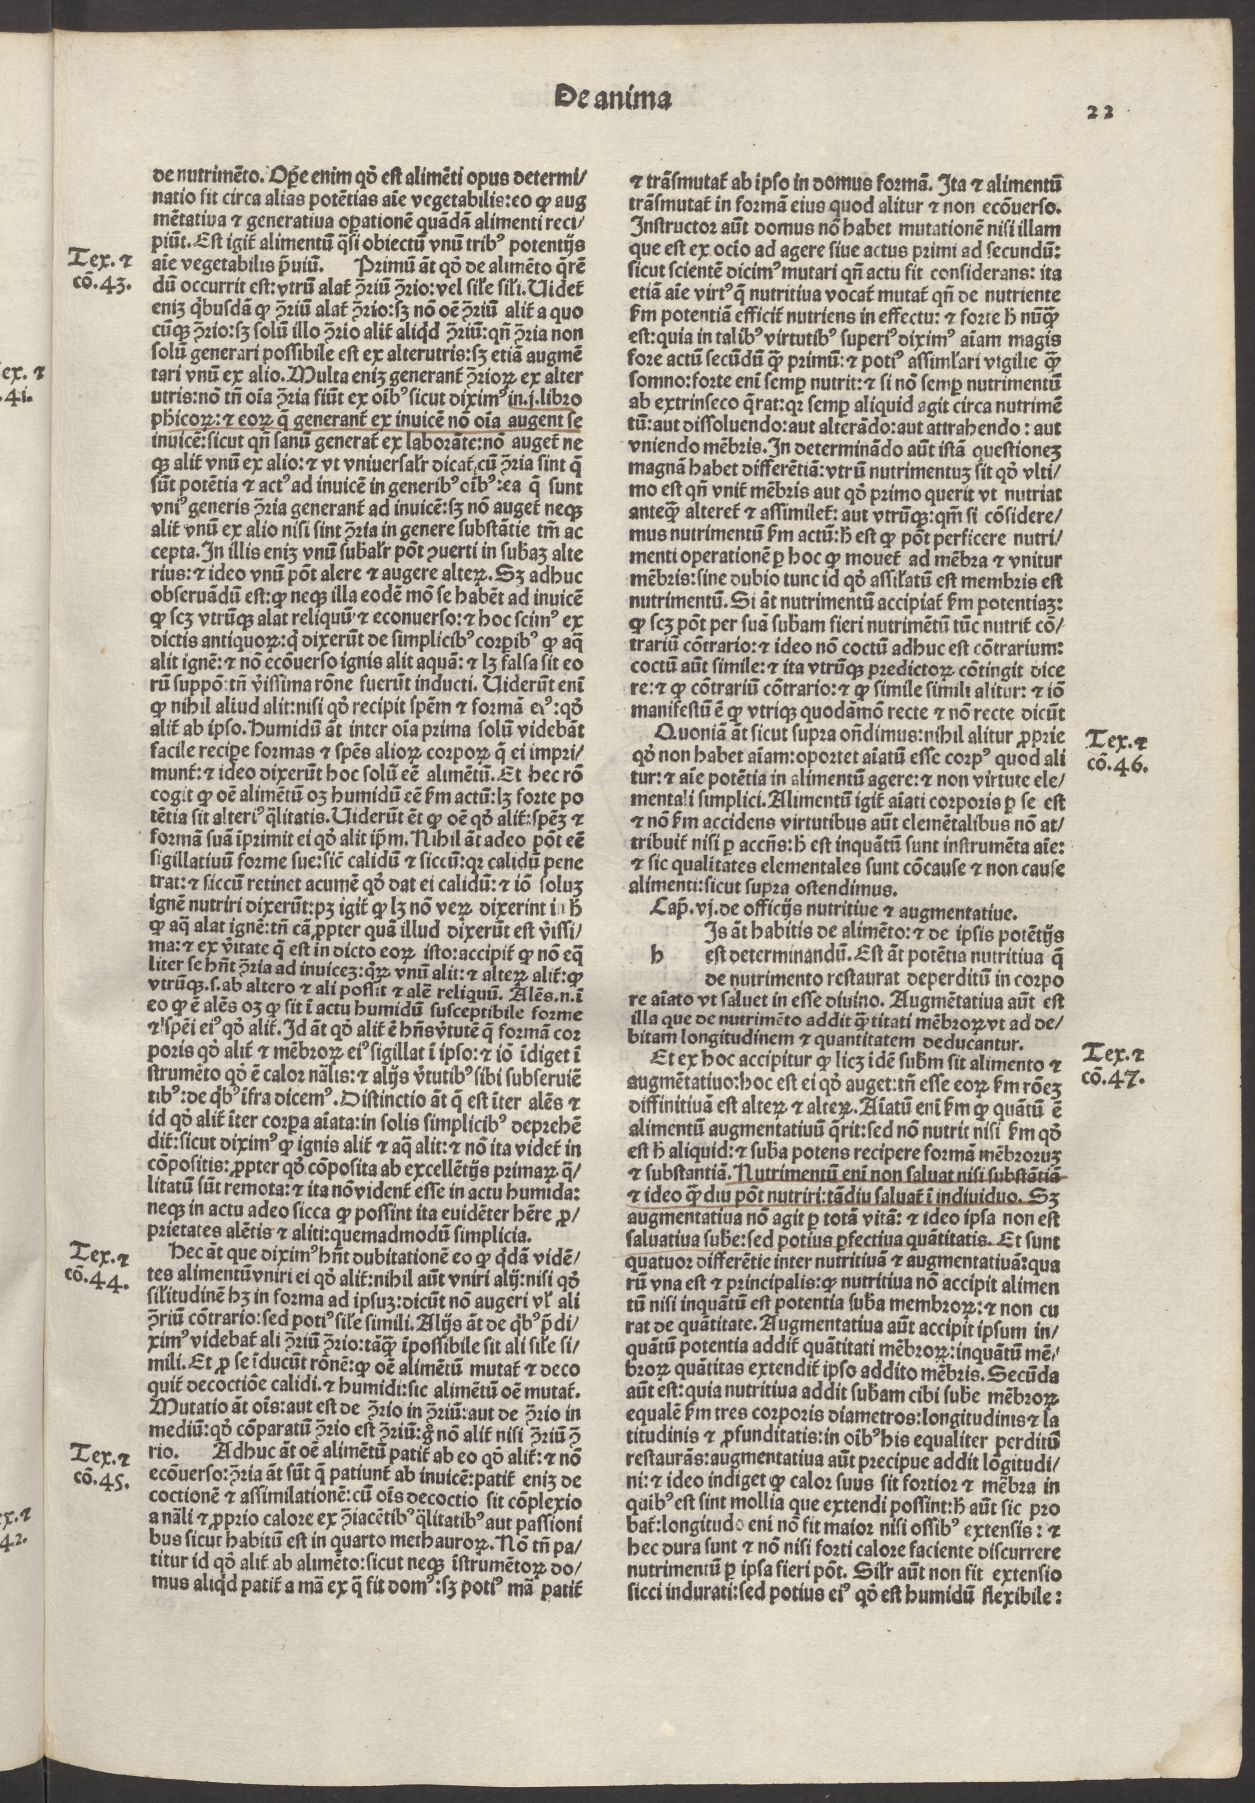 De anima
22
de nutrimēto. Oꝑe enim qđ est alimēti opus determi/
natio fit circa alias potētias aīe vegetabilis: eo ꝙ aug
mētatiua ⁊ generatiua oꝑationē quādā alimenti reci/
piūt. Est igit̄ alimentū q̄si obiectū vnū tribꝰ potentijs
Tex. ⁊
cō. 43.
aīe vegetabilis p̄uiū. Primū āt qđ de alimēto q̄rē
dū occurrit est: vtrū alat ꝯ̄riū ꝯ̄rio: vel sil̄e sil̄i. Uidet̄
eniꝫ q̇busdā ꝙ ꝯ̄riū alat̄ ꝯ̄rio: sꝫ nō oē ꝯ̄riū alit̄ a quo
cūqꝫ ꝯ̄rio: sꝫ solū illo ꝯ̄rio alit̄ aliq̇d ꝯ̄riū: qn̄ ꝯ̄ria non
solū generari possibile est ex alterutris: sꝫ etiā augmē
tari vnū ex alio. Multa eniꝫ generant̄ ꝯ̄rioꝝ ex alter
utris: nō tn̄ oīa ꝯ̄ria fiūt ex oībꝰ sicut diximꝰ in .j. libro
ph̄icoꝝ: ⁊ eoꝝ q̄ generant̄ ex inuicē nō oīa augent se
inuicē: sicut qn̄ sanū generat̄ ex laborāte: nō auget̄ ne
qꝫ alit̄ vnū ex alio: ⁊ vt vniuersalr̄ dicat̄, cū ꝯ̄ria sint q̄
sūt potētia ⁊ actꝰ ad inuicē in generibꝰ oībꝰ: ea q̄ sunt
vniꝰ generis ꝯ̄ria generant̄ ad inuicē: sꝫ nō auget̄ neqꝫ
alit̄ vnū ex alio nisi sint ꝯ̄ria in genere substātie tm̄ ac
cepta. In illis eniꝫ vnū sub̄alr̄ pōt ꝯuerti in sub̄aꝫ alte
rius: ⁊ ideo vnū pōt alere ⁊ augere alteꝝ. Sꝫ adhuc
obseruādū est: ꝙ neqꝫ illa eodē mō se habēt ad inuicē
ꝙ scꝫ vtrūqꝫ alat reliquū ⁊ econuerso: ⁊ hoc scimꝰ ex
dictis antiquoꝝ: q̇ dixerūt de simplicibꝰ corꝑibꝰ ꝙ aq̄
alit ignē: ⁊ nō ecōuerso ignis alit aquā: ⁊ lꝫ falsa sit eo
rū suppō: tn̄ v̄issima rōne fuerūt inducti. Uiderūt enī
ꝙ nihil aliud alit: nisi qđ recipit sꝑēm ⁊ formā eiꝰ: qđ
alit̄ ab ipso. Humidū āt inter oīa prima solū videbāt
facile reciꝑe formas ⁊ sꝑēs alioꝝ corpoꝝ q̄ ei impri/
munt̄: ⁊ ideo dixerūt hoc solū eē alimētū. Et hec rō
cogit ꝙ oē alimētū oꝫ humidū eē ẜm actū: lꝫ forte po
tētia sit alteriꝰ q̄litatis. Uiderūt ēt ꝙ oē qđ alit̄: sꝑēꝫ ⁊
formā suā īprimit ei qđ alit ip̄m. Nihil āt adeo pōt eē
sigillatiuū forme sue: sic̄ calidū ⁊ siccū: qꝛ calidū pene
trat: ⁊ siccū retinet acumē qđ dat ei calidū: ⁊ iō soluꝫ
ignē nutriri dixerūt: pꝫ igit̄ ꝙ lꝫ nō veꝝ dixerint in h̄
ꝙ aq̄ alat ignē: tn̄ cā ꝓpter quā illud dixerūt est v̄issi/
ma: ⁊ ex v̄itate q̄ est in dicto eoꝝ isto: accipit̄ ꝙ nō eq̄
liter se hn̄t ꝯ̄ria ad inuiceꝫ: q̄ꝝ vnū alit: ⁊ alteꝝ alit̄: ꝙ
vtrūqꝫ .s. ab altero ⁊ ali possit ⁊ alē reliquū. Alēs .n. ī
eo ꝙ ē alēs oꝫ ꝙ sit ī actu humidū susceptibile forme
⁊ sꝑēi eiꝰ qđ alit̄. Id āt qđ alit̄ ē hn̄s v̄tutē q̄ formā cor
poris qđ alit̄ ⁊ mēbroꝝ eiꝰ sigillat ī ipso: ⁊ iō īdiget ī
strumēto qđ ē calor nālis: ⁊ alijs v̄tutibꝰ sibi subseruiē
tibꝰ: de q̇bꝰ īfra dicemꝰ. Distinctio āt q̄ est īter alēs ⁊
id qđ alit̄ īter corpa aīata: in solis simplicibꝰ deprehē
dit̄: sicut diximꝰ ꝙ ignis alit̄ ⁊ aq̄ alit: ⁊ nō ita videt̄ in
cōpositis: ꝓpter qđ cōposita ab excellētijs primaꝝ q̄/
litatū sūt remota: ⁊ ita nō vident̄ esse in actu humida:
neqꝫ in actu adeo sicca ꝙ possint ita euidēter hēre ꝓ/
prietates alētis ⁊ aliti: quemadmodū simplicia.
Tex. ⁊
cō. 44.
Hec āt que diximꝰ hn̄t dubitationē eo ꝙ q̇dā vidē/
tes alimentū vniri ei qđ alit̄: nihil aūt vniri alij: nisi qđ
sil̄itudinē hꝫ in forma ad ipsuꝫ: dicūt nō augeri vl̄ ali
ꝯ̄riū cōtrario: sed potiꝰ sil̄e simili. Alijs āt de q̇bꝰ p̄di/
ximꝰ videbat̄ ali ꝯ̄riū ꝯ̄rio: tāq̄ꝫ īpossibile sit ali sil̄e si/
mili. Et ꝓ se īducūt rōnē: ꝙ oē alimētū mutat̄ ⁊ deco
quit̄ decoctiōe calidi. ⁊ humidi: sic alimētū oē mutat̄.
Mutatio āt oīs: aut est de ꝯ̄rio in ꝯ̄riū: aut de ꝯ̄rio in
mediū: qđ cōparatū ꝯ̄rio est ꝯ̄riū: g̊ nō alit̄ nisi ꝯ̄riū ꝯ̄
Tex. ⁊
cō. 45.
rio. Adhuc āt oē alimētū patit̄ ab eo qđ alit̄: ⁊ nō
ecōuerso: ꝯ̄ria āt sūt q̄ patiunt̄ ab inuicē: patit̄ eniꝫ de
coctionē ⁊ assimilationē: cū oīs decoctio sit cōplexio
a nāli ⁊ ꝓprio calore ex ꝯ̄iacētibꝰ q̄litatibꝰ aut passioni
bus sicut habitū est in quarto methauroꝝ. Nō tn̄ pa/
titur id qđ alit̄ ab alimēto: sicut neqꝫ īstrumētoꝝ do/
mus aliq̇d patit̄ a mā ex q̄ fit domꝰ: sꝫ potiꝰ mā patit̄
⁊ trāsmutat̄ ab ipso in domus formā. Ita ⁊ alimentū
trāsmutat̄ in formā eius quod alitur ⁊ non ecōuerso.
Instructor aūt domus nō habet mutationē nisi illam
que est ex ocio ad agere siue actus primi ad secundū:
sicut scientē dicimꝰ mutari qn̄ actu fit considerans: ita
etiā aīe virtꝰ q̄ nutritiua vocat̄ mutat̄ qn̄ de nutriente
ẜm potentiā efficit̄ nutriens in effectu: ⁊ forte h̄ nūq̄ꝫ
est: quia in talibꝰ virtutibꝰ superiꝰ diximꝰ aīam magis
fore actū secundū q̄ꝫ primū: ⁊ potiꝰ assimilari vigilie q̄ꝫ
somno: forte enī semꝑ nutrit: ⁊ si nō semꝑ nutrimentū
ab extrinseco q̄rat: qꝛ semꝑ aliquid agit circa nutrimē
tū: aut dissoluendo: aut alterādo: aut attrahendo: aut
vniendo mēbris. In determinādo aūt istā questioneꝫ
magnā habet differētiā: vtrū nutrimentuꝫ sit qđ vlti/
mo est qn̄ vnit̄ mēbris aut qđ primo querit vt nutriat
anteq̄ꝫ alteret̄ ⁊ assimilet̄: aut vtrūqꝫ: qm̄ si cōsidere/
mus nutrimentū ẜm actū: h̄ est ꝙ pōt perficere nutri/
menti operationē ꝑ hoc ꝙ mouet̄ ad mēbra ⁊ vnitur
mēbris: sine dubio tunc id qđ assil̄atū est membris est
nutrimentū. Si āt nutrimentū accipiat̄ ẜm potentiaꝫ:
ꝙ scꝫ pōt per suā sub̄am fieri nutrimētū tūc nutrit̄ cō/
trariū cōtrario: ⁊ ideo nō coctū adhuc est cōtrarium:
coctū aūt simile: ⁊ ita vtrūqꝫ predictoꝝ cōtingit dice
re: ⁊ ꝙ cōtrariū cōtrario: ⁊ ꝙ simile simili alitur: ⁊ iō
manifestū ē ꝙ vtriqꝫ quodāmō recte ⁊ nō recte dicūt
Quoniā āt sicut supra on̄dimus: nihil alitur ꝓprie
Tex. ⁊
cō. 46.
qđ non habet aīam: oportet aīatū esse corpꝰ quod ali
tur: ⁊ aīe potētia in alimentū agere: ⁊ non virtute ele/
mentali simplici. Alimentū igit̄ aīati corporis ꝑ se est
⁊ nō ẜm accidens virtutibus aūt elemētalibus nō at/
tribuit̄ nisi ꝑ accn̄s: h̄ est inquātū sunt instrumēta aīe:
⁊ sic qualitates elementales sunt cōcause ⁊ non cause
alimenti: sicut supra ostendimus.
Cap̄. vj. de officijs nutritiue ⁊ augmentatiue.
h Is āt habitis de alimēto: ⁊ de ipsis potētijs
est determinandū. Est āt potētia nutritiua q̄
de nutrimento restaurat deperditū in corpo
re aīato vt saluet in esse diuino. Augmētatiua aūt est
illa que de nutrimēto addit q̄ꝫtitati mēbroꝝ vt ad de/
bitam longitudinem ⁊ quantitatem deducantur.
Tex. ⁊
cō. 47.
Et ex hoc accipitur ꝙ licꝫ idē subm̄ sit alimento ⁊
augmētatiuo: hoc est ei qđ auget: tn̄ esse eoꝝ ẜm rōeꝫ
diffinitiuā est alteꝝ ⁊ alteꝝ. Aīatū enī ẜm ꝙ quātū ē
alimentū augmentatiuū q̄rit: sed nō nutrit nisi ẜm qđ
est h̄ aliquid: ⁊ sub̄a potens recipere formā mēbroruꝫ
⁊ substantiā. Nutrimentū enī non saluat nisi substātiā
⁊ ideo q̄ꝫdiu pōt nutriri: tādiu saluat̄ ī indiuiduo. Sꝫ
augmentatiua nō agit ꝑ totā vitā: ⁊ ideo ipsa non est
saluatiua sub̄e: sed potius ꝑfectiua quātitatis. Et sunt
quatuor differētie inter nutritiuā ⁊ augmentatiuā: qua
rū vna est ⁊ principalis: ꝙ nutritiua nō accipit alimen
tū nisi inquātū est potentia sub̄a membroꝝ: ⁊ non cu
rat de quātitate. Augmentatiua aūt accipit ipsum in/
quātū potentia addit̄ quātitati mēbroꝝ: inquātū mē/
broꝝ quātitas extendit̄ ipso addito mēbris. Secūda
aūt est: quia nutritiua addit sub̄am cibi sub̄e mēbroꝝ
equalē ẜm tres corporis diametros: longitudinis ⁊ la
titudinis ⁊ ꝓfunditatis: in oībꝰ his equaliter perditū
restaurās: augmentatiua aūt precipue addit lōgitudi/
ni: ⁊ ideo indiget ꝙ calor suus sit fortior ⁊ mēbra in
quibꝰ est sint mollia que extendi possint: h̄ aūt sic pro
bat̄: longitudo enī nō fit maior nisi ossibꝰ extensis: ⁊
hec dura sunt ⁊ nō nisi forti calore faciente discurrere
nutrimentū ꝑ ipsa fieri pōt. Silr̄ aūt non fit extensio
sicci indurati: sed potius eiꝰ qđ est humidū flexibile: